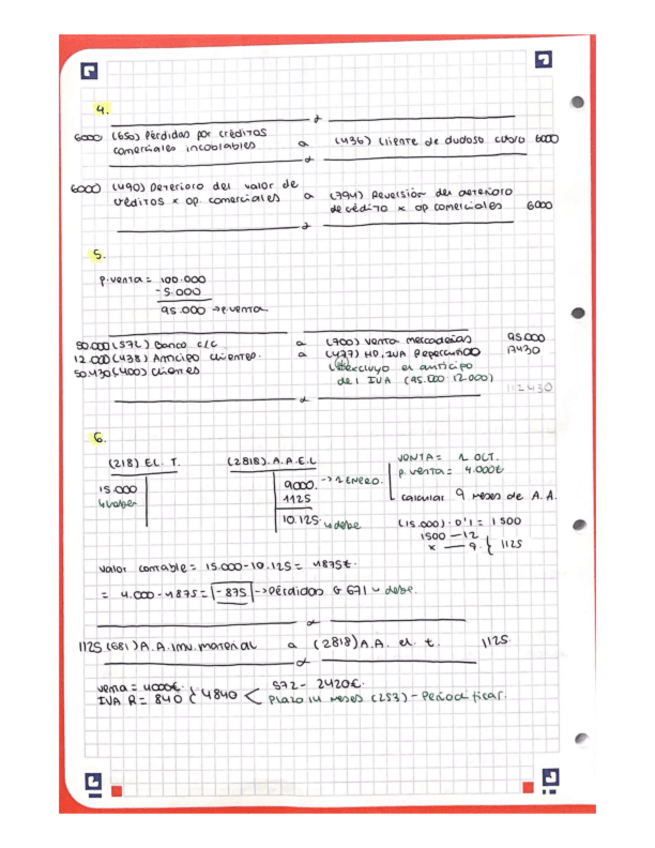 4.
6000 (650) Pérdidas por créditos
comerciales incobrables a (436) Cliente de dudoso cobro 6000
6000 (490) Deterioro del valor de
créditos x op. comerciales a (794) Reversión del deterioro
de crédito x op comerciales 6000
5.
P.venta = 100.000
- 5.000
95.000 → P.venta
50.000 (572) Banco c/c a (700) Venta mercaderías 95.000
12.000 (438) Anticipo clientes. a (477) HP, IVA Repercutido 17430
50.430 (400) Clientes excluyo el anticipo
del IVA (95.000 12.000)
112430
6.
(218) EL. T. (2818). A. A. E. L
VENTA = 1 OCT.
P. venta = 4.000€
calcular 9 meses de A. A.
15.000
↳ haber
9000. → 1 ENERO.
1125
10.125 ↳ debe
(15.000) · 0'1 = 1500
1500 — 12
x — 9 } 1125
Valor contable = 15.000 - 10.125 = 4875€.
= 4.000 - 4875 = - 875 → Pérdidas G 671 ↳ debe.
1125 (681) A. A. inv. material a (2818) A.A. el. t. 1125.
venta = 4000€.
IVA R = 840 } 4840 < 572 - 2420€.
Plazo 14 meses (253) - Periodificar.